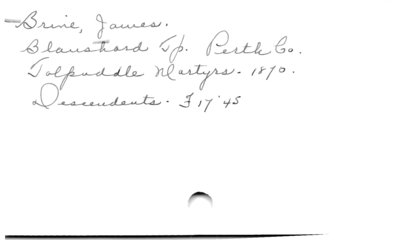 Brine, James.
Blanshard Tp. Perth Co.
Tolpuddle Martyrs - 1870.
Descendents - F 17 '45